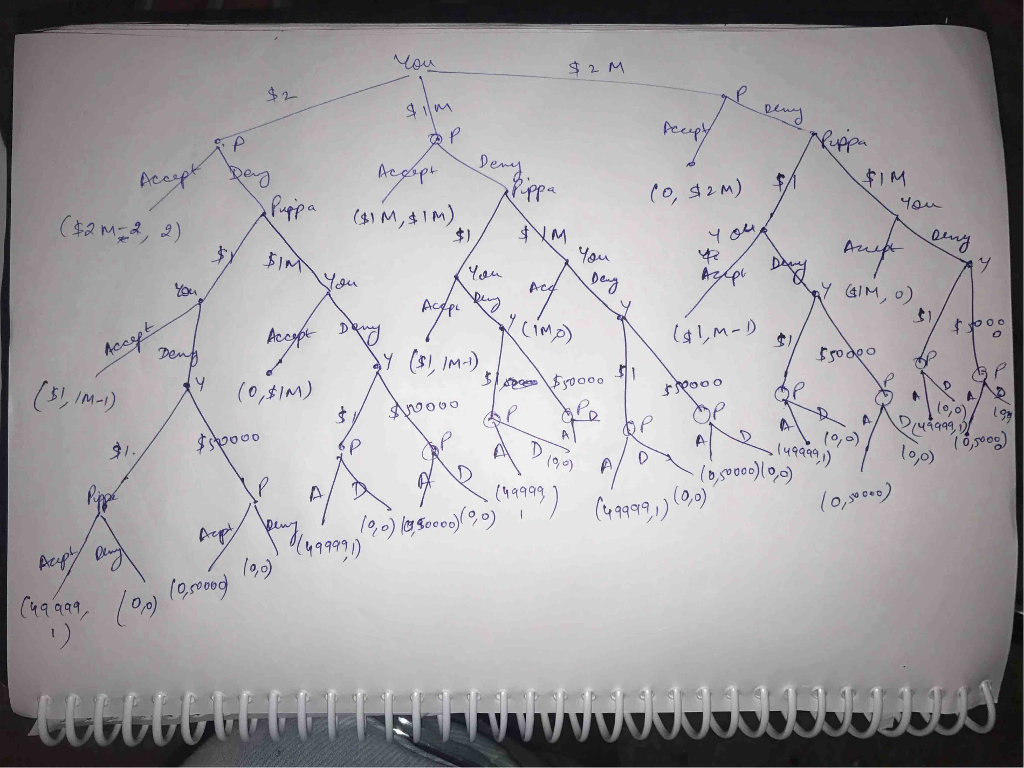 You
$2
$1M
$2M
P
P
P
Accept
Deny
Accept
Deny
Accept
Deny
($2M-2, 2)
Pippa
($1M, $1M)
Pippa
(0, $2M)
Pippa
$1
$1M
$1
$1M
$1
$1M
You
You
You
You
You
You
Accept
Deny
Accept
Deny
Accept
Deny
Acc
Deny
Accept
Deny
Accept
Deny
($1, 1M-1)
(0, $1M)
($1, 1M-1)
(1M,0)
($1, M-1)
($1M, 0)
Y
Y
Y
Y
Y
Y
$1.
$50000
$1
$50000
$1
$50000
$1
$50000
$1
$50000
$1
$50000
Pippa
P
P
P
P
P
P
P
P
P
P
P
Accept
Deny
Accept
Deny
A
D
A
D
A
D
A
D
A
D
A
D
A
D
A
D
A
D
A
D
(49999, 1)
(0,0)
(0,50000)
(0,0)
(49999,1)
(0,0)
(0,50000)
(0,0)
(49999, 1)
(0,0)
(49999,1)
(0,0)
(0,50000)
(0,0)
(49999,1)
(0,0)
(0,50000)
(0,0)
(49999,1)
(0,0)
(0,50000)